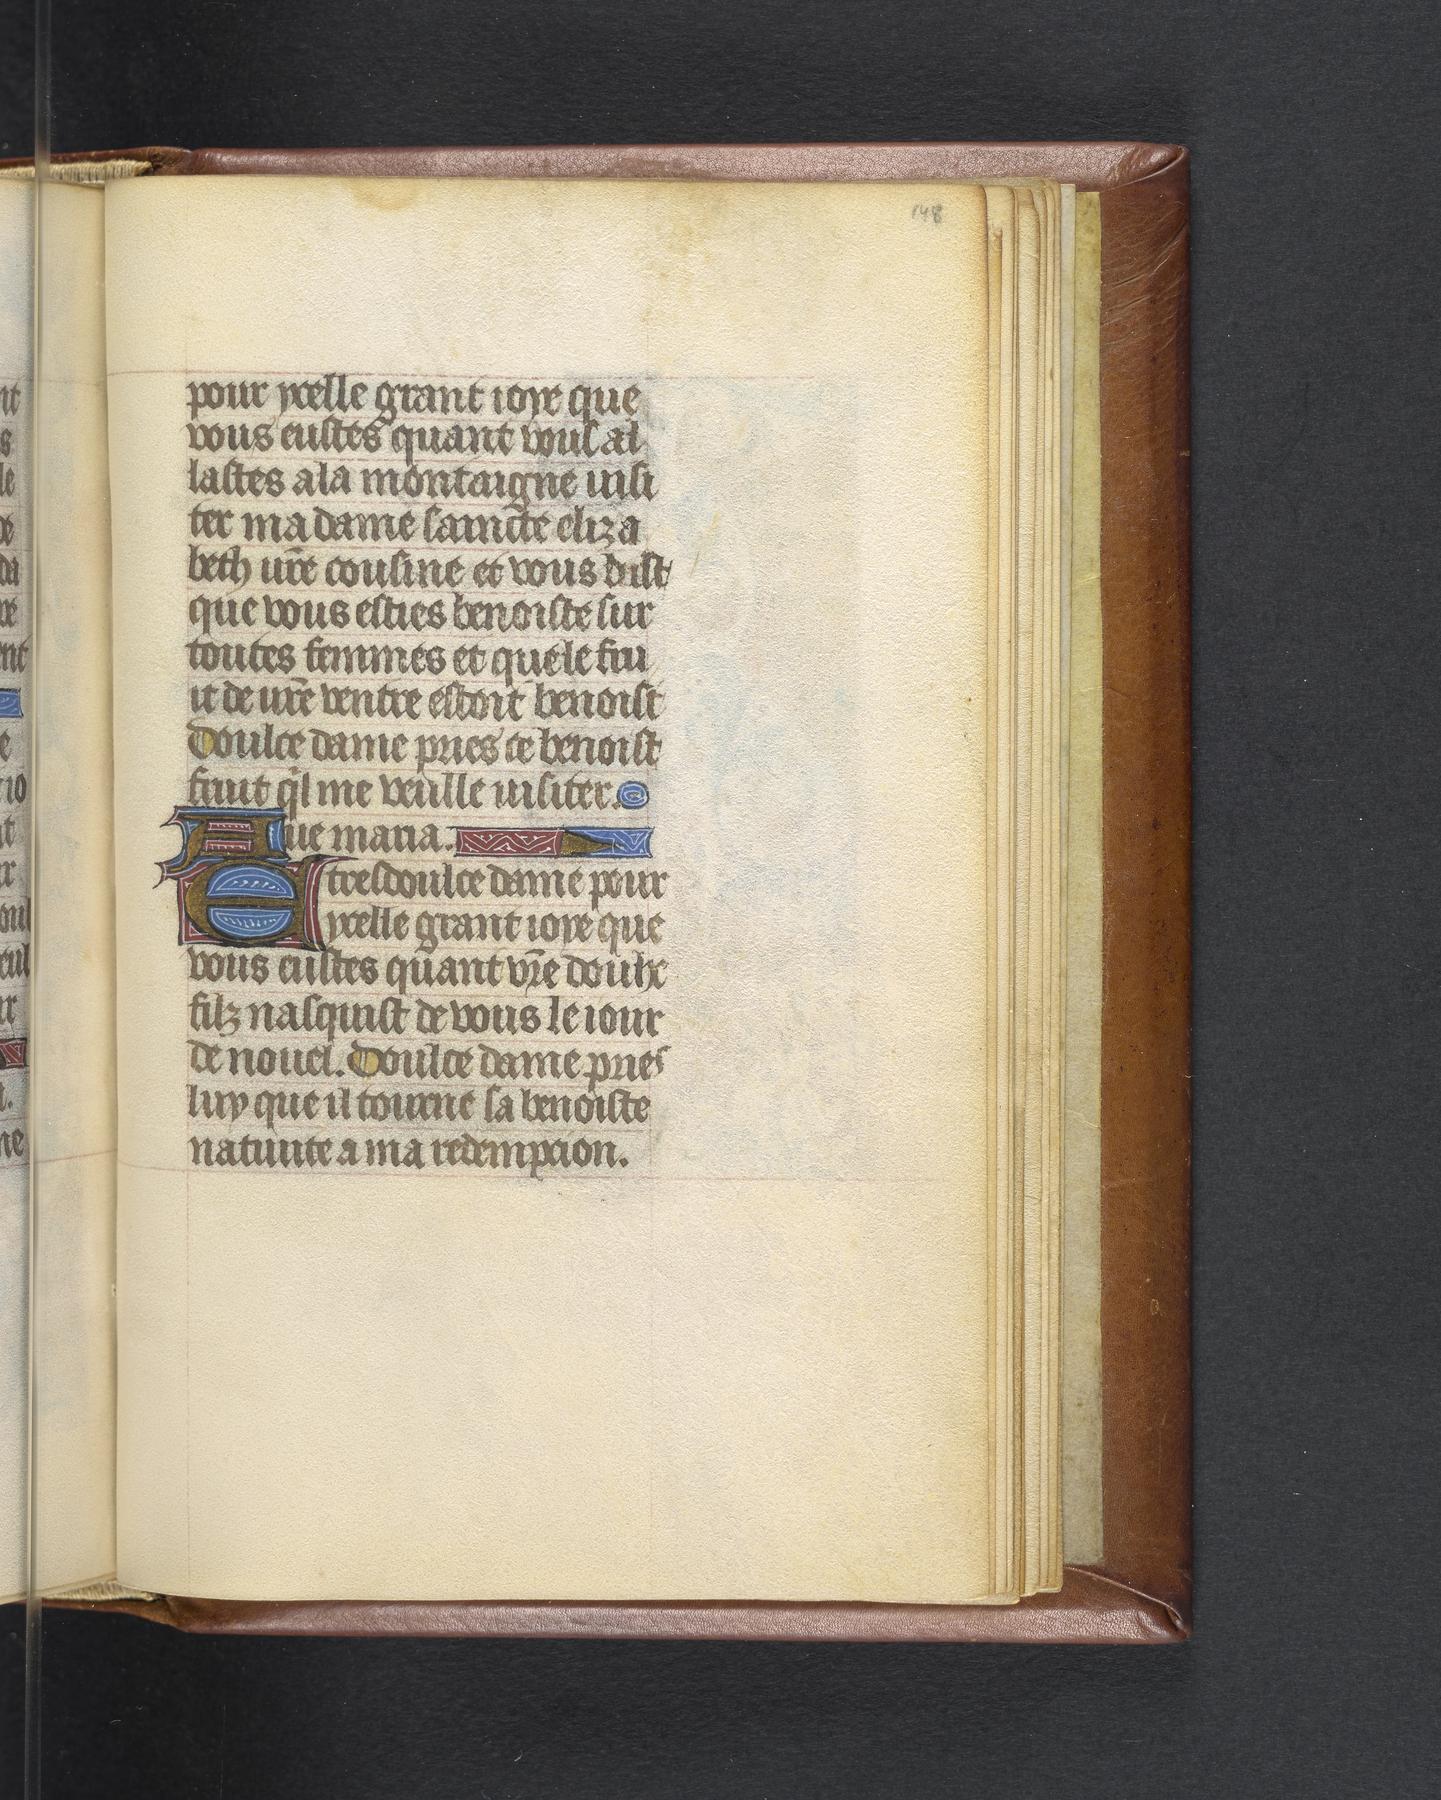 148
pour ycelle grant ioye que
vous eustes quant vous al
lastes a la montaigne uisi
ter ma dame saincte eliza
beth ur̄e cousine et vous dist
que vous esties benoiste sur
toutes femmes et que le fru
it de ur̄e ventre estoit benoist
Doulce dame pries ce benoist
fruit q̄l me veulle uisiter.
Aue maria.
E tresdoulce dame pour
ycelle grant ioye que
vous eustes quant vr̄e doulx
filz nasquist de vous le iour
de nouel. Doulce dame pries
luy que il tourne sa benoiste
natiuite a ma redempcion.